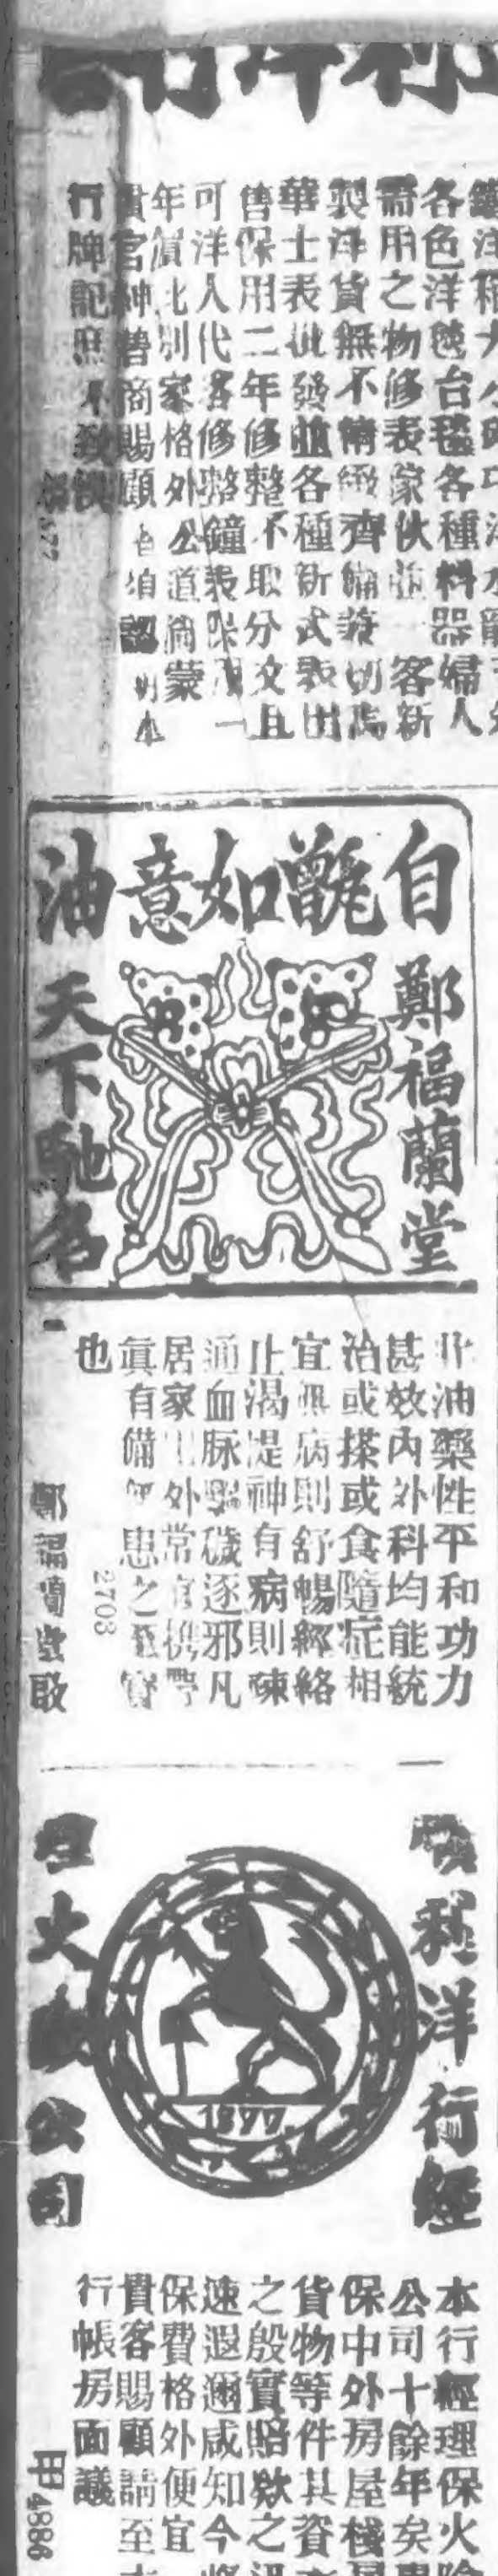 利洋行
各色洋毯台毯各種料器婦人
需用之物修表家伙並一客新
製洋貨無不精緻齊備兼切馬
華士表批發並各種新式表出
售保用二年修整不取分文且
可洋人代客修整鐘表保用一
年價比別家格外公道倘蒙
貴官紳商賜顧者須認明本
行牌記庶不致誤
自製如意油
鄭福蘭堂
天下馳名
此油藥性平和功力
甚效內外科均能統
治或搽或食隨症相
宜無病則舒暢經絡
止渴提神有病則疎
通血脉驅穢逐邪凡
居家出外常宜携帶
真有備無患之至寶
也
2703
鄭福蘭堂啟
利洋行經
理火險公司
1877
本行經理保火險
公司十餘年矣
保中外房屋棧
貨物等件其資
之殷實賠欵之迅
速遐邇咸知今將
保費格外便宜
貴客賜顧請至本
行帳房面議
甲4886